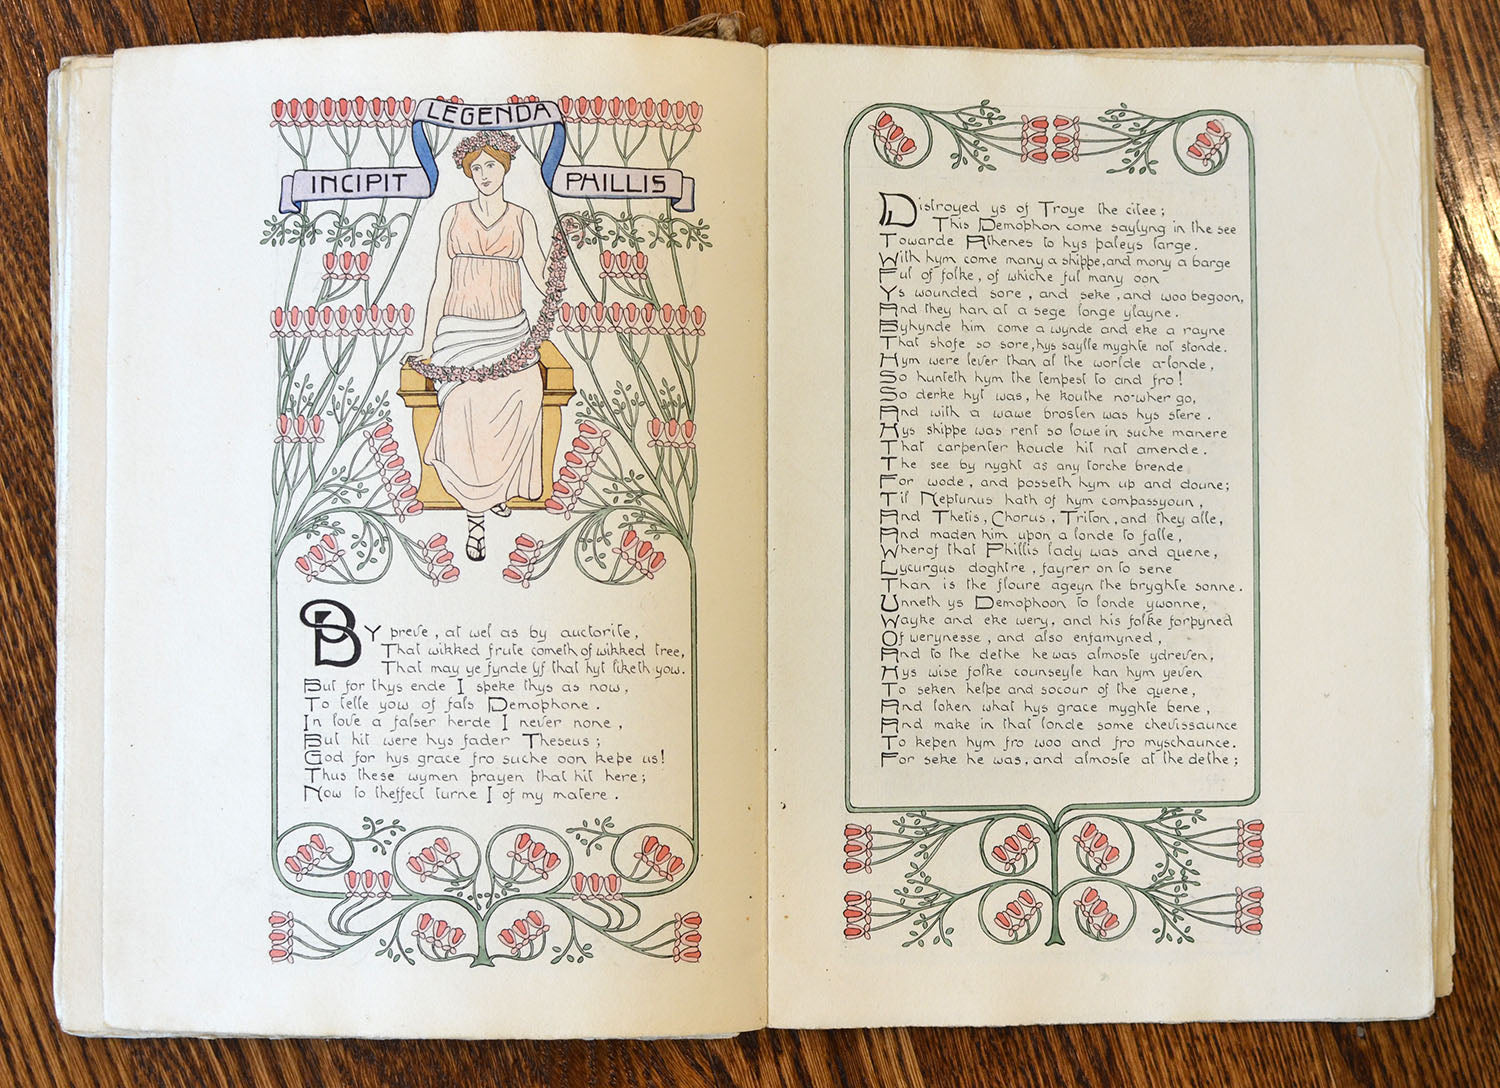 LEGENDA
INCIPIT PHILLIS
By preve, at wel as by auctorite,
That wikked frute cometh of wikked tree,
That may ye fynde yf that hyt liketh yow.
But for thys ende I speke thys as now,
To telle yow of fals Demophone.
In love a falser herde I never none,
But hit were hys fader Theseus;
God for hys grace fro suche oon kepe us!
Thus these wymen prayen that hit here;
Now to theffect turne I of my matere.
Distroyed ys of Troye the citee;
This Demophon come saylyng in the see
Towarde Athenes to hys paleys large.
With hym come many a shippe, and mony a barge
Ful of folke, of whiche ful many oon
Ys wounded sore, and seke, and woo begoon,
And they han at a sege longe ylayne.
Byhynde him come a wynde and eke a rayne
That shofe so sore, hys saylle myghte not stonde.
Hym were lever than al the worlde a-londe,
So hunteth hym the tempest to and fro!
So derke hyt was, he kouthe no-wher go,
And with a wawe brosten was hys stere.
Hys shippe was rent so lowe in suche manere
That carpenter koude hit nat amende.
The see by nyght as any torche brende
For wode, and posseth hym up and doune;
Til Neptunus hath of hym compassyoun,
And Thetis, Chorus, Triton, and they alle,
And maden him upon a londe to falle,
Wherof that Phillis lady was and quene,
Lycurgus doghtre, fayrer on to sene
Than is the floure ageyn the bryghte sonne.
Unneth ys Demophoon to londe ywonne,
Wayke and eke wery, and his folke forpyned
Of werynesse, and also enfamyned,
And to the dethe he was almoste ydreven,
Hys wise folke counseyle han hym yeven
To seken helpe and socour of the quene,
And loken what hys grace myghte bene,
And make in that londe some chevissaunce
To kepen hym fro woo and fro myschaunce.
For seke he was, and almoste at the dethe;